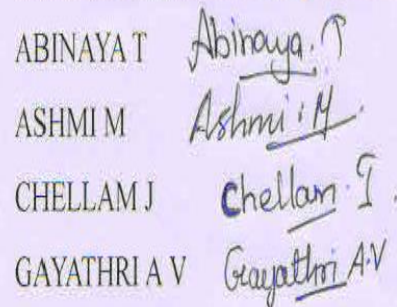 ABINAYA T Abinaya. T
ASHMI M Ashmi. M.
CHELLAM J Chellam. J.
GAYATHRI A V Gayathri A.V